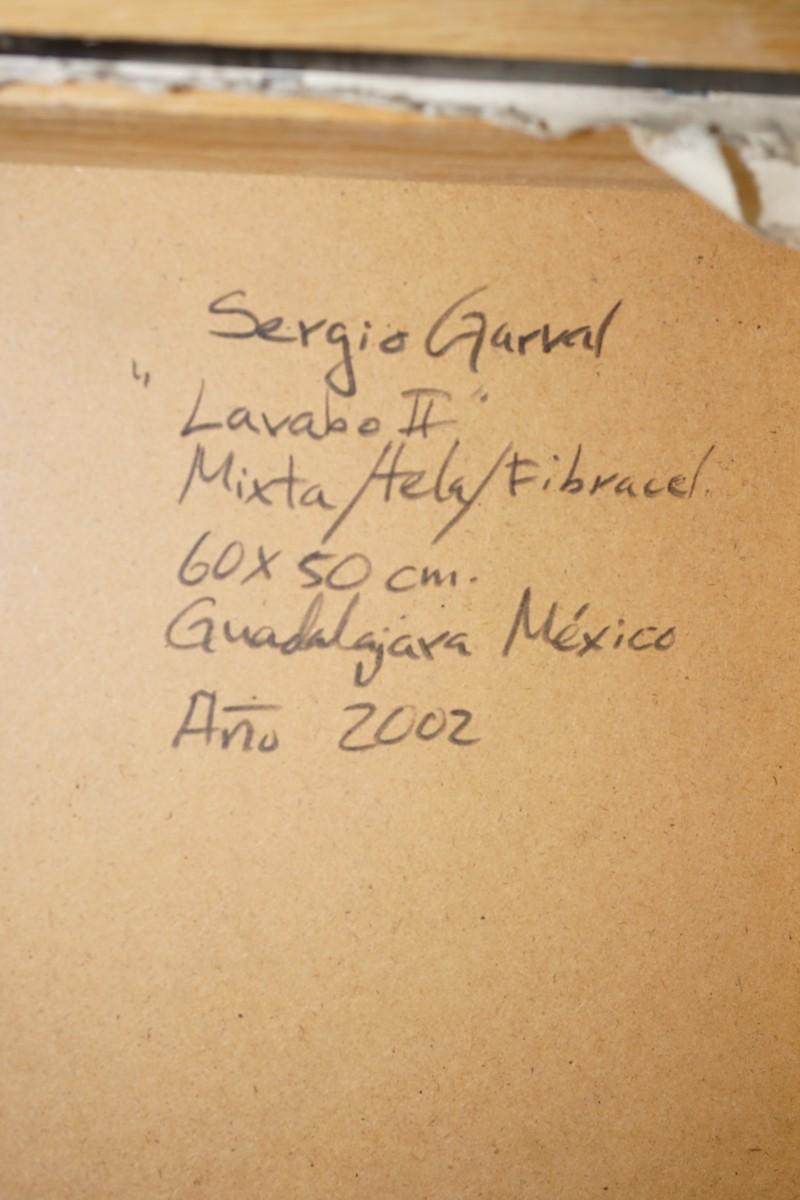 Sergio Garval
"Lavabo II"
Mixta/tela/Fibracel.
60 X 50 cm.
Guadalajara México
Año 2002